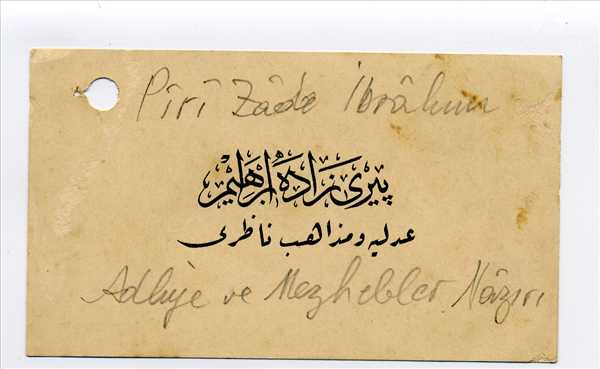 Pîrî Zâde İbrâhim
پیری زاده ابراهیم
عدلیه و مذاهب ناظری
Adliye ve Mezhebler Nâzırı